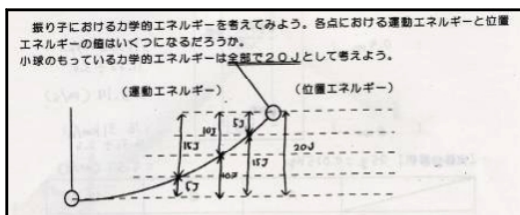 振り子における力学的エネルギーを考えてみよう。各点における運動エネルギーと位置
エネルギーの値はいくつになるだろうか。
小球のもっている力学的エネルギーは全部で20Jとして考えよう。
(運動エネルギー) (位置エネルギー)
5J
10J
15J
20J
15J
10J
5J